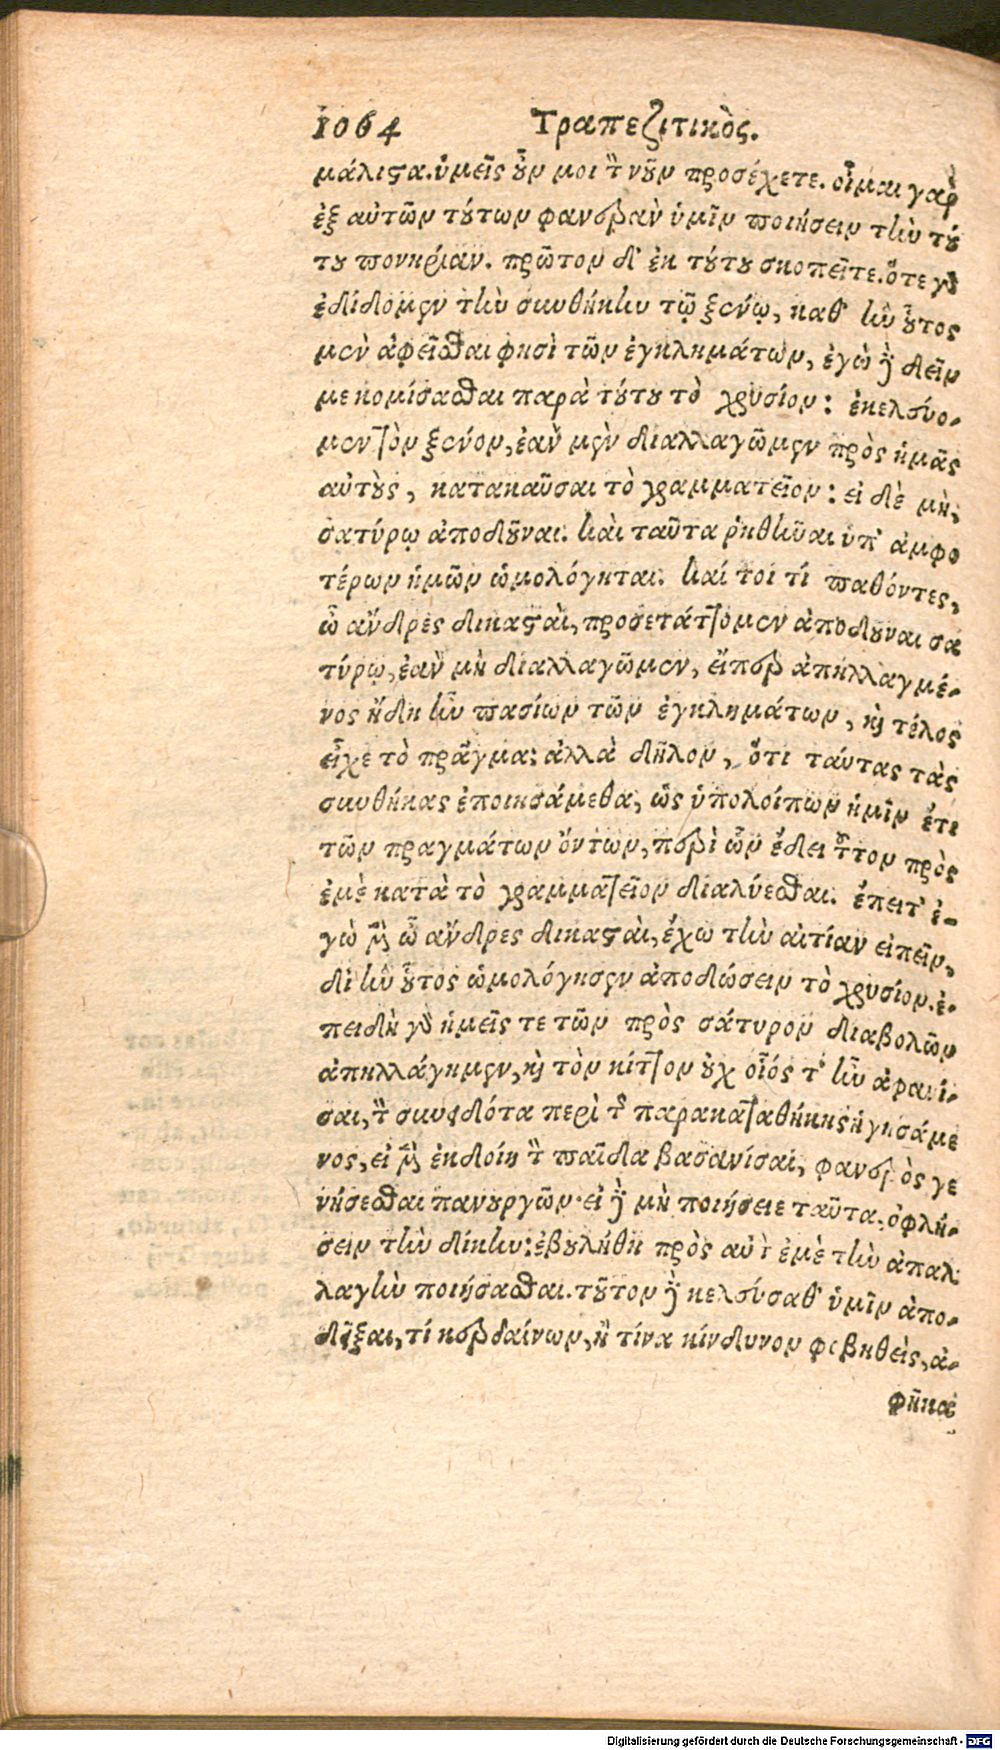 1064 Τραπεζιτικὸς.
μάλιστα. ὑμεῖς οὖν μοι τὸν νοῦν προσέχετε. οἶμαι γὰρ
ἐξ αὐτῶν τούτων φανερὰν ὑμῖν ποιήσειν τὴν τού
του πονηρίαν. πρῶτον δ' ἐκ τούτου σκοπεῖτε. ὅτε γὸ
ἐδίδομεν τὴν συνθήκην τῷ ξένῳ, καθ' ἣν οὗτος
μὲν ἀφεῖσθαι φησὶ τῶν ἐγκλημάτων, ἐγὼ δὲ δεῖν
με κομίσασθαι παρὰ τούτου τὸ χρυσίον: ἐκελεύο-
μεν τὸν ξένον, ἐὰν μὲν διαλλαγῶμεν πρὸς ἡμᾶς
αὐτοὺς, κατακαῦσαι τὸ γραμματεῖον: εἰ δὲ μὴ,
σατύρῳ ἀποδοῦναι. καὶ ταῦτα ῥηθῆναι ὑπ' ἀμφο
τέρων ἡμῶν ὡμολόγηται. καί τοι τί παθόντες,
ὦ ἄνδρες δικασταὶ, προσετάττομεν ἀποδοῦναι σα
τύρῳ, ἐὰν μὴ διαλλαγῶμεν, εἴπερ ἀπηλλαγμέ-
νος ἤδη ἦν πασίων τῶν ἐγκλημάτων, καὶ τέλος
εἶχε τὸ πρᾶγμα: ἀλλὰ δῆλον, ὅτι ταύτας τὰς
συνθήκας ἐποιησάμεθα, ὡς ὑπολοίπων ἡμῖν ἔτι
τῶν πραγμάτων ὄντων, περὶ ὧν ἔδει τοῦτον πρὸς
ἐμὲ κατὰ τὸ γραμματεῖον διαλύεσθαι. ἔπειτ' ἐ-
γὼ μὲν ὦ ἄνδρες δικασταὶ, ἔχω τὴν αἰτίαν εἰπεῖν,
δι' ἣν οὗτος ὡμολόγησεν ἀποδώσειν τὸ χρυσίον. ἐ-
πειδὴ γὸ ἡμεῖς τε τῶν πρὸς σάτυρον διαβολῶν
ἀπηλλάγημεν, καὶ τὸν κίττον οὐχ οἷός τ' ἦν ἀφανί-
σαι, τὸν συνειδότα περὶ τῆς παρακαταθήκης ἡγησάμε
νος, εἰ μὲν ἐκδοίη τὸν παῖδα βασανίσαι, φανερὸς γε
νήσεσθαι πανουργῶν· εἰ δὲ μὴ ποιήσειε ταῦτα, ὀφλή-
σειν τὴν δίκην: ἐβουλήθη πρὸς αὐτὸν ἐμὲ τὴν ἀπαλ
λαγὴν ποιήσασθαι. τοῦτον δὲ κελεύσαθ' ὑμῖν ἀπο-
δεῖξαι, τί κερδαίνων, ἢ τίνα κίνδυνον φοβηθεὶς, ἀ-
φῆκα
Digitalisierung gefördert durch die Deutsche Forschungsgemeinschaft - DFG